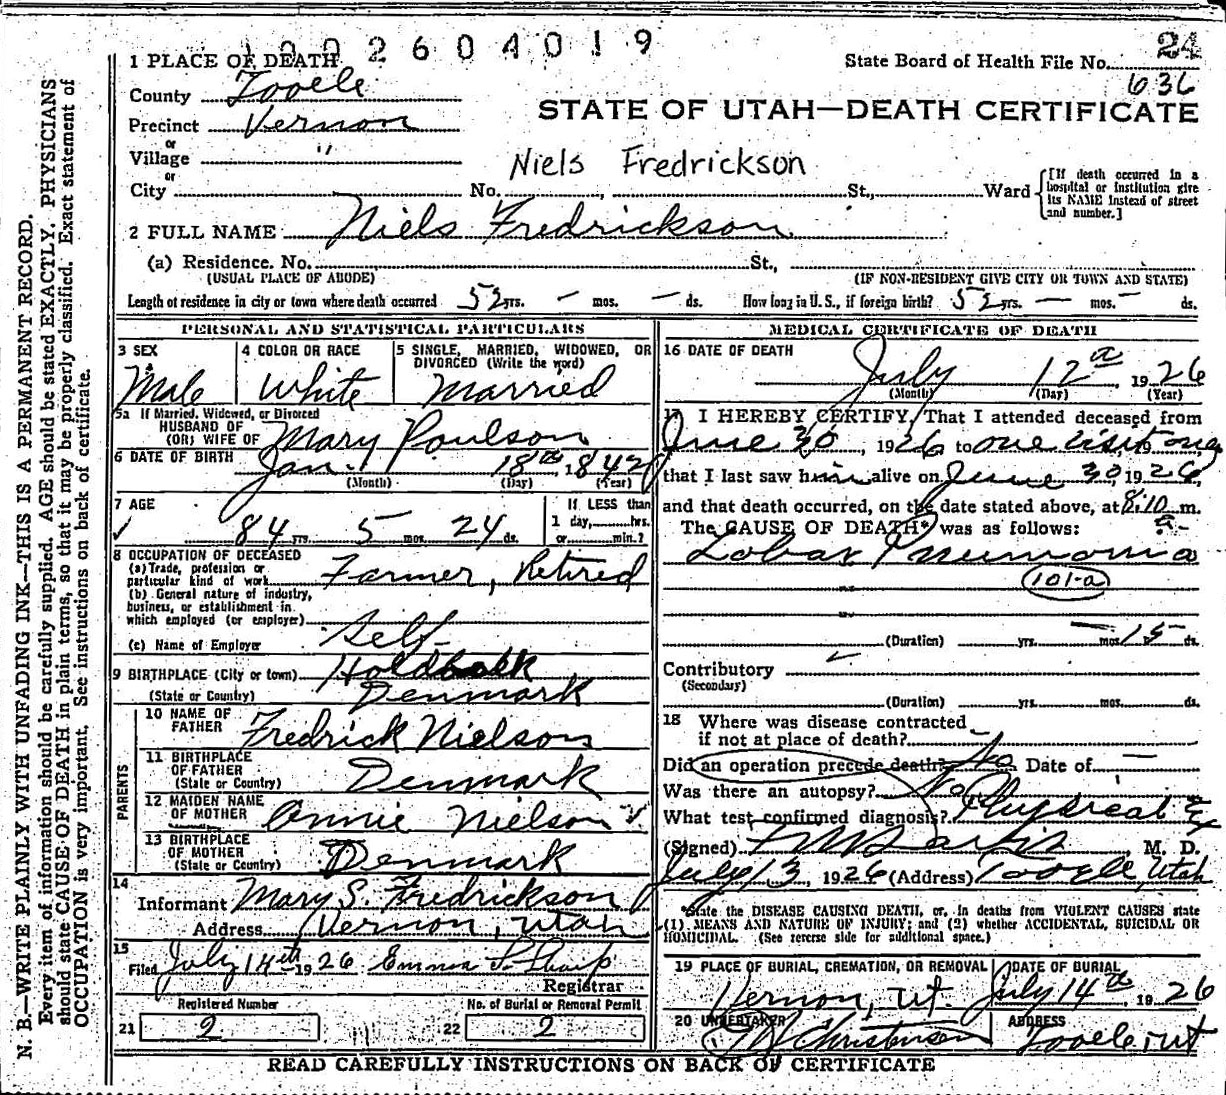 1002604019
24
1 PLACE OF DEATH
State Board of Health File No.
636
County Tooele
STATE OF UTAH—DEATH CERTIFICATE
Precinct Vernon
or
Village "
or
Niels Fredrickson
City No. St., Ward
[If death occurred in a hospital or institution give its NAME instead of street and number.]
2 FULL NAME Niels Fredrickson
(a) Residence. No. St.,
(USUAL PLACE OF ABODE) (IF NON-RESIDENT GIVE CITY OR TOWN AND STATE)
Length of residence in city or town where death occurred 52 yrs. — mos. — ds. How long in U. S., if foreign birth? 52 yrs. — mos. — ds.
PERSONAL AND STATISTICAL PARTICULARS
3 SEX
Male
4 COLOR OR RACE
White
5 SINGLE, MARRIED, WIDOWED, OR DIVORCED (Write the word)
Married
5a If Married, Widowed, or Divorced
HUSBAND OF
(OR) WIFE OF Mary Poulson
6 DATE OF BIRTH Jan. 18th, 1842
(Month) (Day) (Year)
7 AGE
84 yrs. 5 mos. 24 ds.
If LESS than
1 day, hrs.
or min.?
8 OCCUPATION OF DECEASED
(a) Trade, profession or
particular kind of work Farmer, Retired
(b) General nature of industry,
business, or establishment in
which employed (or employer)
(c) Name of Employer Self
9 BIRTHPLACE (City or town) Holdbolk
(State or Country) Denmark
PARENTS
10 NAME OF FATHER Fredrick Nielson
11 BIRTHPLACE OF FATHER (State or Country) Denmark
12 MAIDEN NAME OF MOTHER Annie Nielson
13 BIRTHPLACE OF MOTHER (State or Country) Denmark
14
Informant Mary S. Fredrickson
Address Vernon, Utah
15
Filed July 14th 1926 Emma S. Sharp
Registrar
Registered Number
21 2
No. of Burial or Removal Permit
22 2
MEDICAL CERTIFICATE OF DEATH
16 DATE OF DEATH
July 12th, 1926
(Month) (Day) (Year)
17 I HEREBY CERTIFY, That I attended deceased from
June 30, 1926 to one visit only
that I last saw him alive on June 30, 1926,
and that death occurred, on the date stated above, at 8:10 a. m.
The CAUSE OF DEATH* was as follows:
Lobar Pneumonia
101-a
(Duration) yrs. — mos. 15 ds.
Contributory
(Secondary)
(Duration) yrs. mos. ds.
18 Where was disease contracted
if not at place of death?
Did an operation precede death? No Date of —
Was there an autopsy? No
What test confirmed diagnosis? Physical Ex
(Signed) M. D.
July 13, 1926 (Address) Tooele, Utah
*State the DISEASE CAUSING DEATH, or, in deaths from VIOLENT CAUSES state
(1) MEANS AND NATURE OF INJURY; and (2) whether ACCIDENTAL, SUICIDAL OR
HOMICIDAL. (See reverse side for additional space.)
19 PLACE OF BURIAL, CREMATION, OR REMOVAL
Vernon, Ut.
DATE OF BURIAL
July 14th, 1926
20 UNDERTAKER
Christensen
ADDRESS
Tooele, Ut
READ CAREFULLY INSTRUCTIONS ON BACK OF CERTIFICATE
N. B.—WRITE PLAINLY WITH UNFADING INK—THIS IS A PERMANENT RECORD.
Every item of information should be carefully supplied. AGE should be stated EXACTLY. PHYSICIANS
should state CAUSE OF DEATH in plain terms, so that it may be properly classified. Exact statement of
OCCUPATION is very important. See instructions on back of certificate.